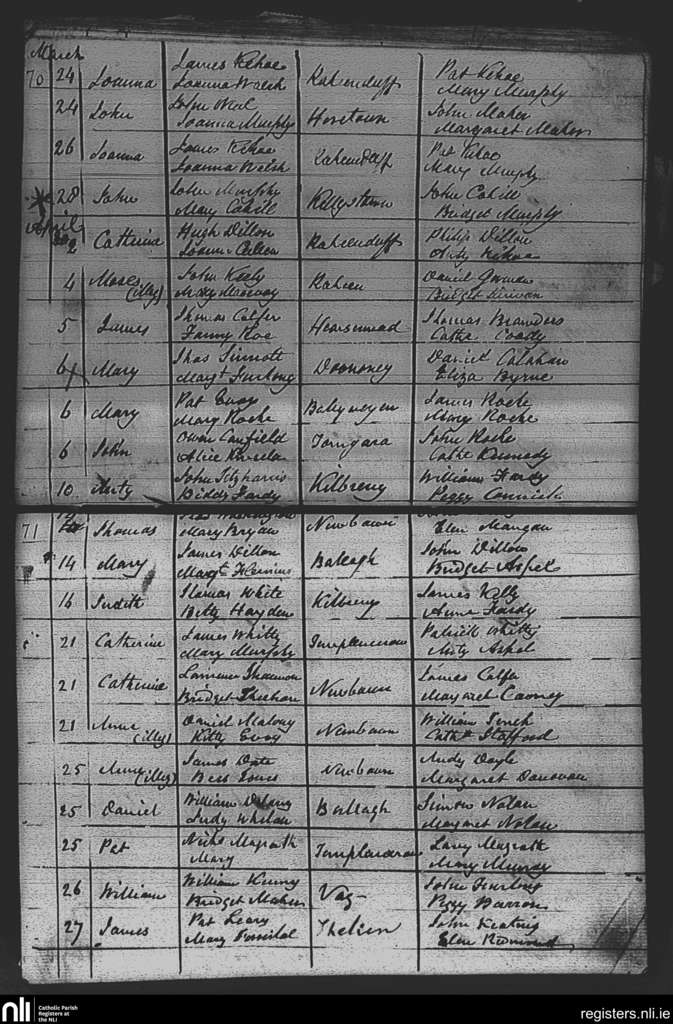 March
70 24 Joanna James Kehoe Rahenduff Pat Kehoe
Joanna Walsh Mary Murphy
24 John John Horetown John Maher
Joanna Murphy Margaret Maher
26 Joanna James Kehoe Rahenduff Pat Kehoe
Joanna Welsh Mary Murphy
28 John John Murphy John Cahill
Mary Cahill Bridget Murphy
April
2 Catherine Hugh Dillon Rahenduff Philip Dillon
Joanna Cullen Anty Kehoe
4 Moses John Keely Raheen Daniel Gorman
(illeg) Mary Bridget Kirwan
5 James Thomas Colfer Thomas Branders
Fanny Roe Cathe Coady
6 Mary Thos Sinnott Doononey Daniel Calahan
Margt Furlong Eliza Byrne
6 Mary Pat Evoy James Roche
Mary Roche Mary Roche
6 John Owen Canfield John Roche
Alice Cathe Kennedy
10 Anty John Fitzharris Kilbreny William Hardy
Biddy Hardy Peggy Connick
71 Thomas Newbawn
Mary Bryan Elen Mangan
14 Mary James Dillon Baleagh John Dillon
Margt Bridget Aspel
16 Judith Thomas White Kilbreny James Kelly
Betty Hayden Anne Hardy
21 Catherine James Whitty Patrick Whitty
Mary Murphy Anty Aspel
21 Catherine Newbawn James Colfer
Bridget Margaret Cooney
21 Anne Daniel Malony Newbawn William
(illeg) Kitty Evoy Cathe Stafford
25 Anne (illeg) James Newbawn Andy Doyle
Bess Margaret Donovan
25 Daniel William Simon Nolan
Judy Whelan Margaret Nolan
25 Pat Nichs Magrath Larry Magrath
Mary Mary Murray
26 William William Kenny Vag John Furlong
Bridget Maher Peggy Barron
27 James Pat Leary John Keating
Mary Elen Redmond
nli Catholic Parish
Registers at
the NLI
registers.nli.ie